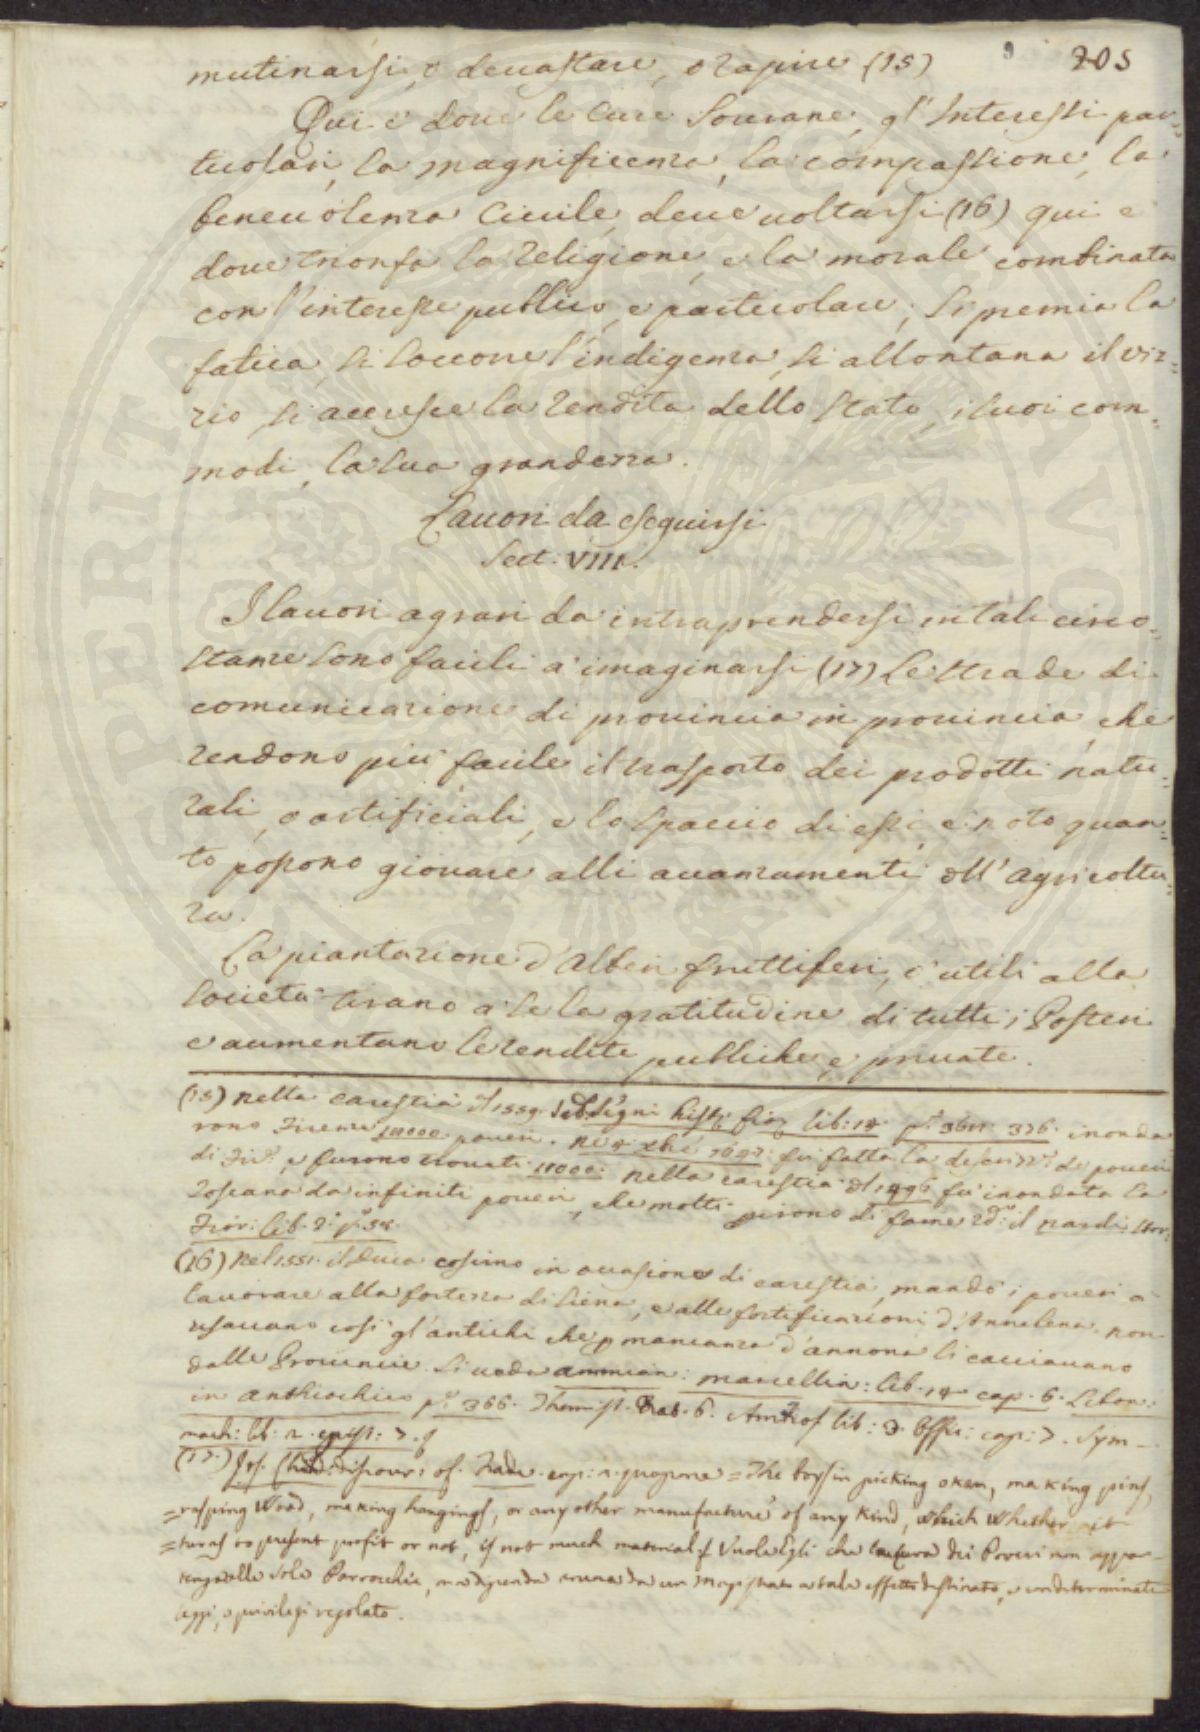 205
mutinarsi, o devastare, o rapire (15)
Qui è dove le Cure Sovrane, gl'Interessi par=
ticolari, la magnificenza, la compassione, la
benevolenza Civile, deve voltarsi (16) qui è
dove trionfa la Religione, e la morale combinata
con l'interesse publico, e particolare; si premia la
fatica, si soccorre l'indigenza, si allontana il viz=
zio si accresce la rendita dello Stato, i suoi com=
modi, la sua grandezza.
Lavori da eseguirsi
Sect. VIII.
I lavori agrari da intraprendersi in tali circo=
stanze sono facili a imaginarsi (17) Le strade di
comunicazione di provincia in provincia, che
rendono più facile il trasporto dei prodotti natu=
rali, o artificiali, e lo spaccio di essi, è noto quan=
to possono giovare alli avanzamenti dell'agricoltu=
ra.
La piantazione d'Alberi fruttiferi, e utili alla
società tirano a se la gratitudine di tutti i Posteri
e aumentano le rendite publiche, e private.
(15) Nella carestia del 1559. Segni hist: fior: lib: 14. inonda
rono Firenze poveri. fu fatta la de poveri
di Fir.e, e furono trovati 11000: Nella carestia del 1496 fu inondata la
Toscana da infiniti poveri, che molti perirono di fame il Nardi Stor:
Fior: lib. 2.
(16) Nel 1551. il Duca Cosimo in occasione di carestia, mandò i poveri a
lavorare alla fortezza di Siena, e alle fortificazioni d'Annalena. non
usavano così gl'antichi che p mancanza d'annona li cacciavano
dalle Provincie. Si veda ammian: marcellin: lib. 14. cap. 6. Liban:
in anthiochico 366. Themist. 6. Ambros lib: 3. Offic: cap: 7. Sym=
mach: lib. 2. epist: 7.
(17) Jos. Child: discour: of. Trade. cap: 2. propone = The boys in picking okam, making pins,
=rasping Wood, making hangings, or any other manufacture of any Kind, which whether it
=turns to present profit or not, is not much material = Vuole Egli che la cura dei Poveri non appar=
tenga alle sole Parrocchie, ma dipenda da un Magistrato a tale effetto destinato, e con determinate
leggi, e privilegi regolato.